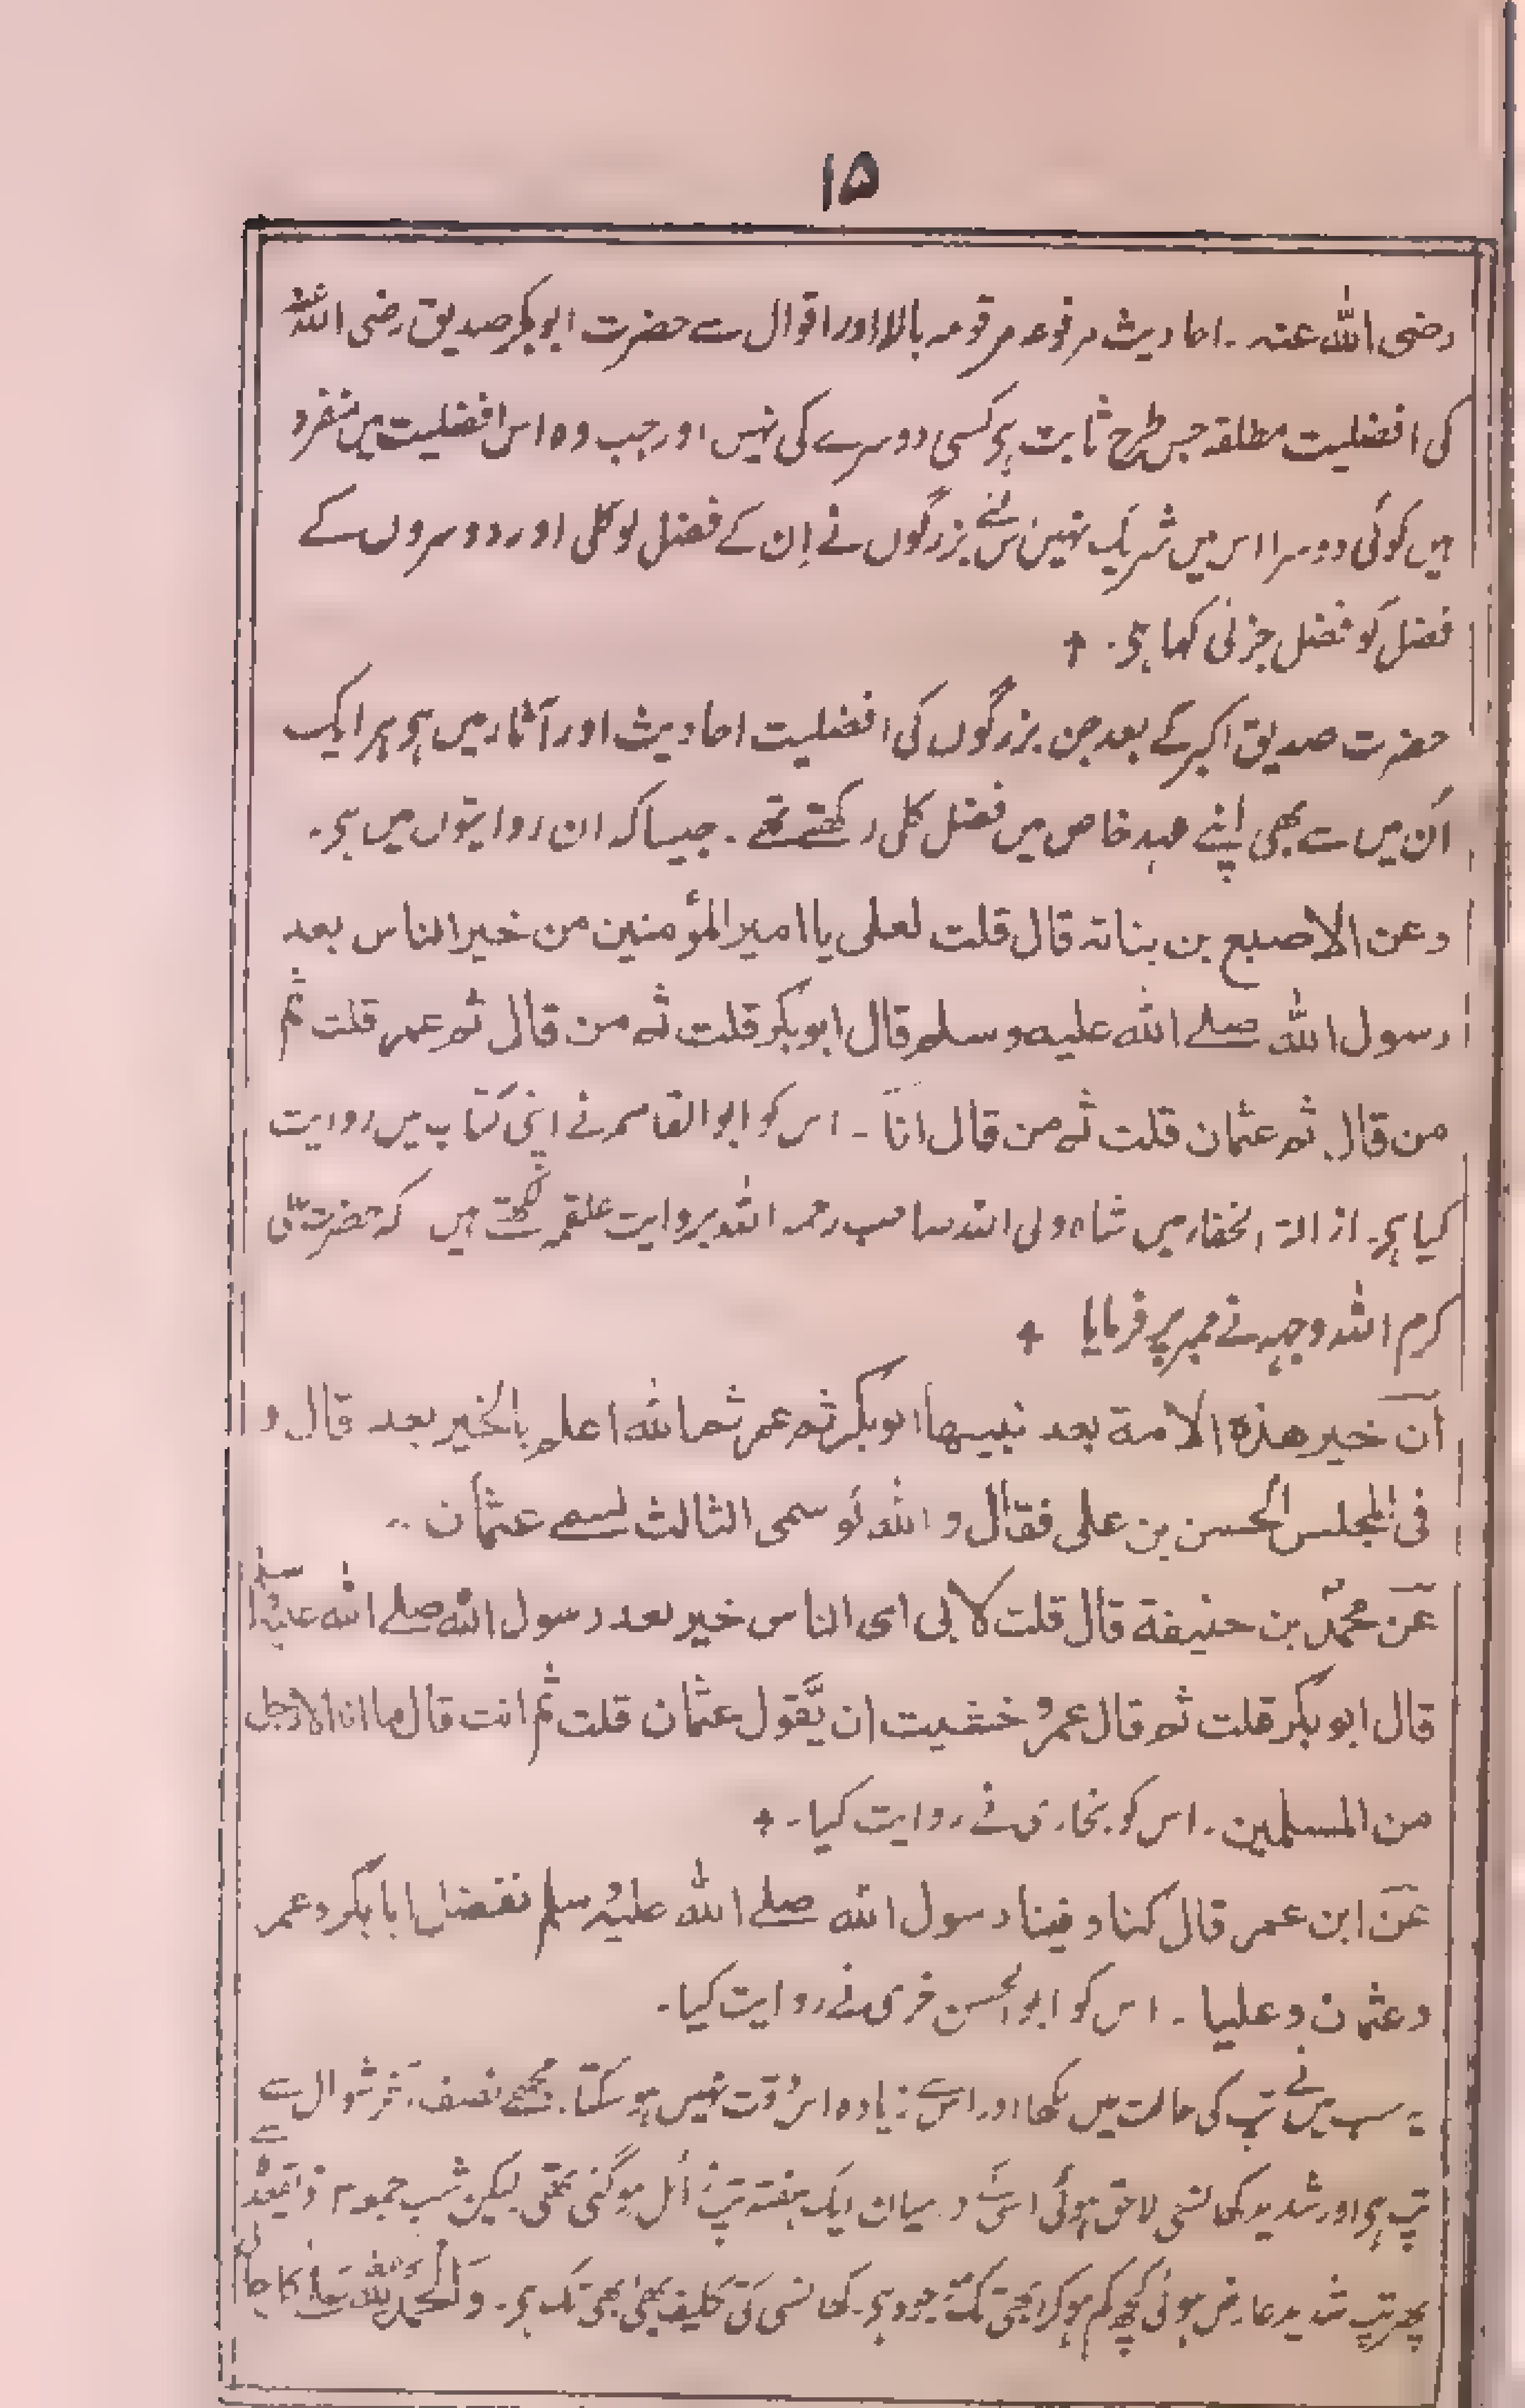 ۱۵
رضی اللہ عنہ ۔ احادیث مرفوعہ مرقومہ بالا اور اقوال سے حضرت ابوبکر صدیق رضی اللہ عنہ
کی افضلیت مطلقہ جس طرح ثابت ہی کسی دوسرے کی نہیں اور جب وہ اس افضلیت میں منفرد
ہیں کوئی دوسرا اس میں شریک نہیں اس لئے بزرگوں نے اِن کے فضل کو کلی اور دوسروں کے
فضل کو فضل جزئی کہا ہی ۔
حضرت صدیق اکبر کے بعد جن بزرگوں کی افضلیت احادیث اور آثار میں ہی ہر ایک
اُن میں سے بھی اپنے عہد خاص میں فضل کلی رکھتے تھے ۔ جیسا کہ ان روایتوں میں ہی ۔
وعن الاصبع بن بناتہ قال قلت لعلی یا امیر المؤمنین من خیر الناس بعد
رسول اللہ صلے اللہ علیہ وسلم قال ابوبکر قلت ثم من قال ثم عمر قلت ثم
من قال ثم عثمان قلت ثم من قال انا ۔ اس کو ابو القاسم نے اپنی کتاب میں روایت
کیا ہی ۔ ازالۃ الخفار میں شاہ ولی اللہ صاحب رحمہ اللہ بروایت علقمہ لکھتے ہیں کہ حضرت علی
کرم اللہ وجہہ نے ممبر پر فرمایا
ان خیر ھذہ الامۃ بعد نبیھا ابوبکر ثم عمر ثم اللہ اعلم بالخیر بعد قال و
فی المجلس الحسن بن علی فقال و اللہ لو سمی الثالث لسمے عثمان ۔
عن محمد بن حنیفۃ قال قلت لابی ای الناس خیر بعد رسول اللہ صلے اللہ علیہ وسلم
قال ابوبکر قلت ثم قال عمر و خشیت ان یقول عثمان قلت ثم انت قال ما انا الا رجل
من المسلمین ۔ اس کو بخاری نے روایت کیا ۔
عن ابن عمر قال کنا و فینا رسول اللہ صلے اللہ علیہ وسلم نفضل ابابکر و عمر
و عثمان و علیا ۔ اس کو ابو الحسن نے روایت کیا ۔
یہ سب میں نے تپ کی حالت میں لکھا اور اس سے زیادہ اس وقت نہیں ہو سکتا ۔ مجھے نصف آخر شوال سے
تپ ہی اور شدید کھانسی لاحق ہوئی اس کے درمیان ایک ہفتہ تپ زائل ہو گئی تھی لیکن شب جمعہ ذیقعدہ سے
پھر تپ شدید عارض ہوئی کچھ کم ہو کر ابھی تک موجود ہی ۔ کھانسی کی تکلیف بھی ابھی تک ہی ۔ والحمد للہ